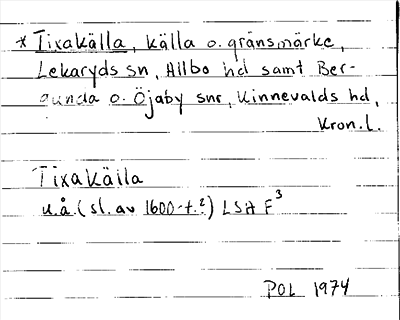 * Tixakälla, källa o. gränsmärke,
Lekaryds sn, Allbo hd samt Ber-
gunda o. Öjaby snr, Kinnevalds hd,
Kron. l.
Tixakälla
u.å. (sl. av 1600-t.?) LSA F³
POL 1974